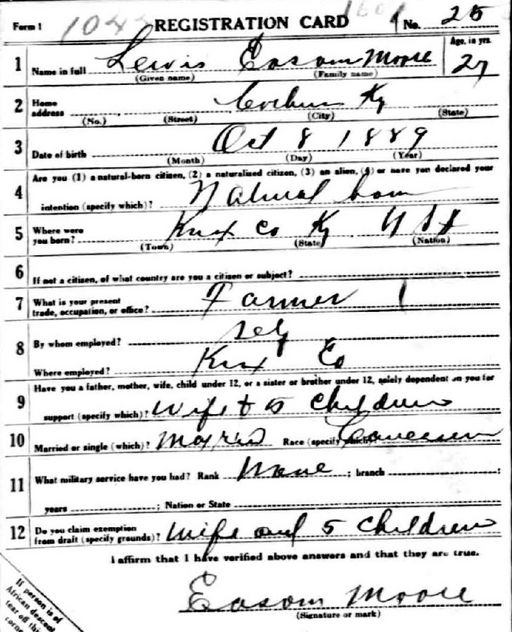 Form 1 REGISTRATION CARD No. 25
1 Name in full Lewis Easom Moore Age, in yrs. 27
(Given name) (Family name)
2 Home address Corbin Ky
(No.) (Street) (City) (State)
3 Date of birth Oct 8 1889
(Month) (Day) (Year)
4 Are you (1) a natural-born citizen, (2) a naturalized citizen, (3) an alien, (4) or have you declared your
intention (specify which)? Natural born
5 Where were you born? Knox Co Ky U S A
(Town) (State) (Nation)
6 If not a citizen, of what country are you a citizen or subject?
7 What is your present trade, occupation, or office? Farmer
8 By whom employed? Self
Where employed? Knox Co
9 Have you a father, mother, wife, child under 12, or a sister or brother under 12, solely dependent on you for
support (specify which)? Wife & 5 Children
10 Married or single (which)? Married Race (specify which)?
11 What military service have you had? Rank None ; branch ;
years ; Nation or State
12 Do you claim exemption from draft (specify grounds)? Wife and 5 Children
I affirm that I have verified above answers and that they are true.
Easom Moore
(Signature or mark)
If person is of
African descent
tear off this
corner